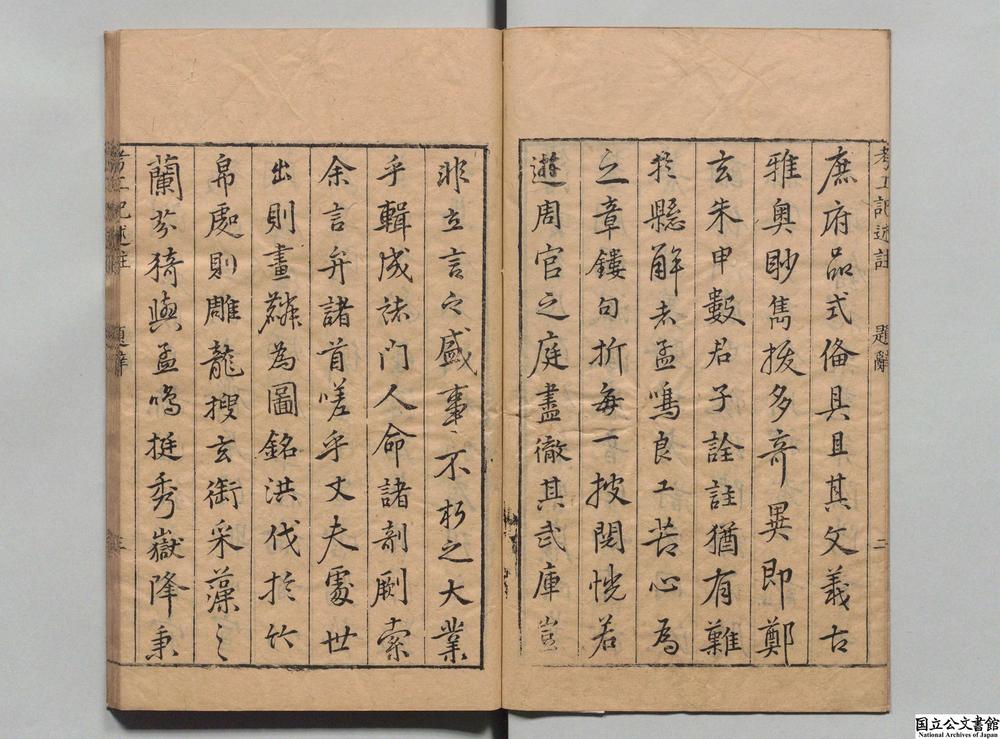 考工記述註 題辭 二
庶府品式俻具且其文義古
雅奥眇雋拔多竒異即鄭
玄朱申數君子詮註猶有難
扵懸解者孟鳴良工苦心為
之章鏤句折每一披閱恍若
遊周官之庭盡徹其武庫豈
非立言之盛事不朽之大業
乎輯成諸門人命諸剞劂索
余言弁諸首嗟乎丈夫處世
出則畫麟為圖銘洪伐扵竹
帛處則雕龍搜玄銜采藻之
蘭芬猗與孟鳴挺秀嶽降秉
考工記述註 題辭 三
国立公文書館
National Archives of Japan